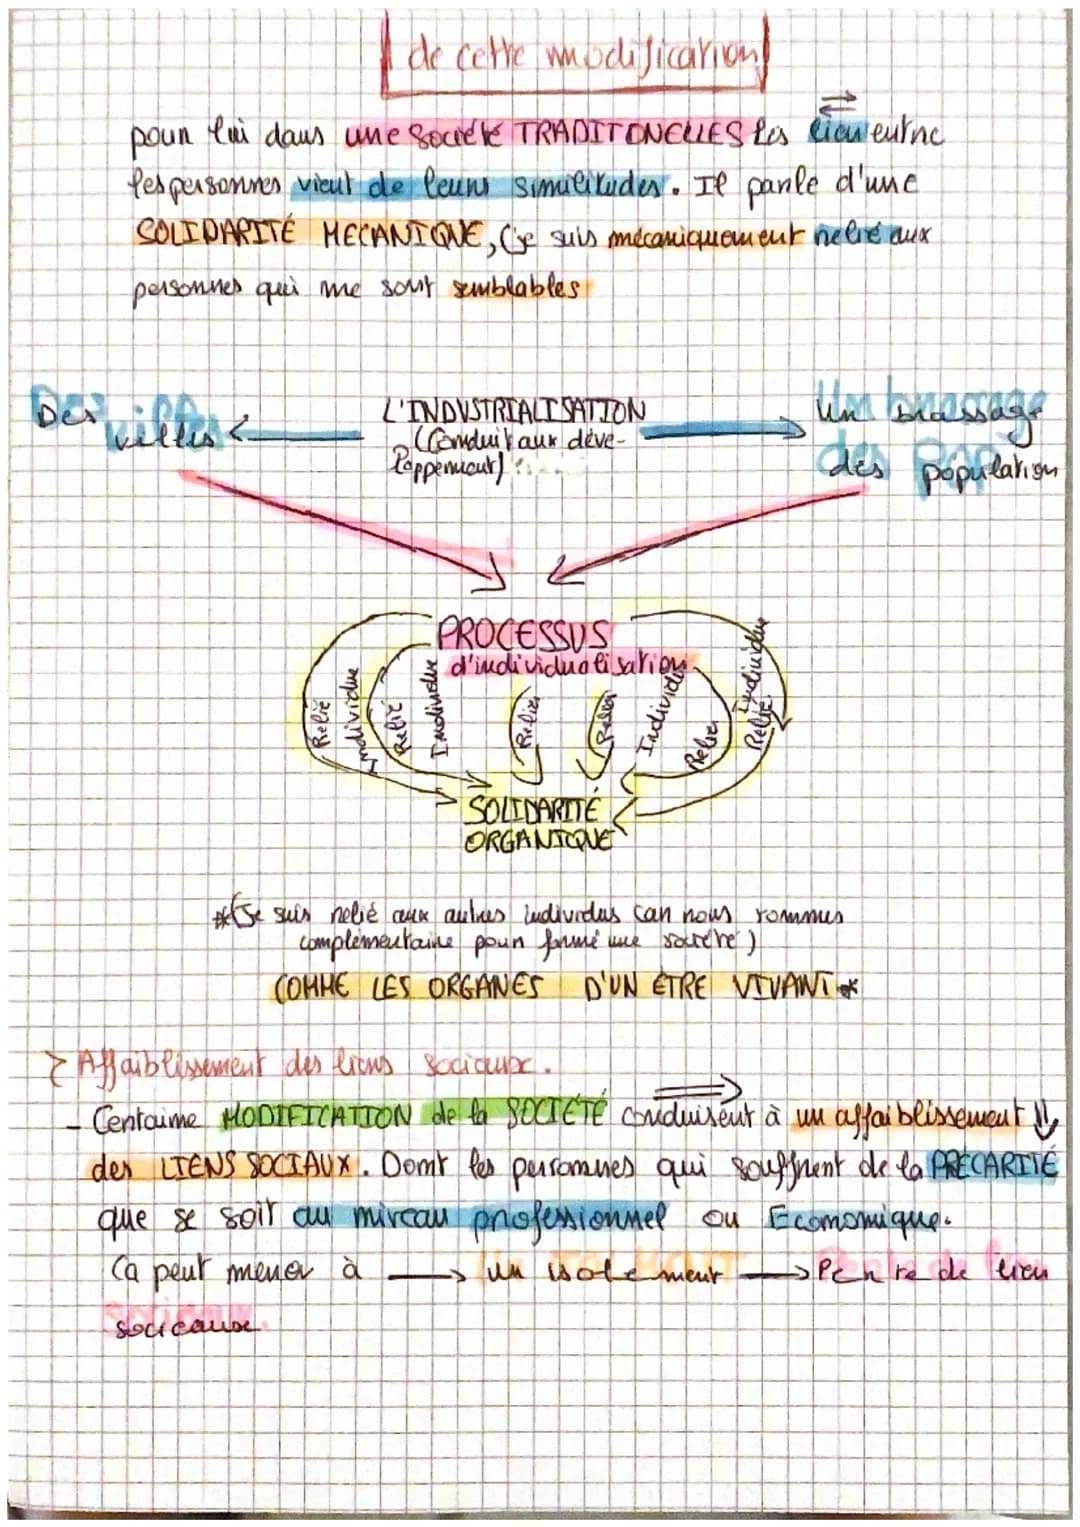 de cette modification
pour lui dans une société TRADITONELLES les lien entre
les personnes vient de leurs similitudes. Il parle d'une
SOLIDARITÉ MECANIQUE, (je suis mécaniquement relié aux
personnes qui me sont semblables
Des villes
L'INDUSTRIALISATION
(Conduit aux déve-
loppement)
Un brassage
des population
PROCESSUS
d'individualisation
Relié
Individue
Relié
Individue
Relier
Relier
Individu
Relier
Individue
Relié
SOLIDARITÉ
ORGANIQUE
*(Je suis relié aux autres individus car nous sommes
complémentaire pour formé une société)
COMME LES ORGANES D'UN ÊTRE VIVANT*
> Affaiblissement des liens sociaux.
- Centaime MODIFICATION de la SOCIÉTÉ conduisent à un affaiblissement
des LIENS SOCIAUX. Dont les personnes qui souffrent de la PRÉCARITÉ
que se soit au niveau professionnel ou Economique.
Ca peut mener à → un isolement → Perte de lien
sociaux